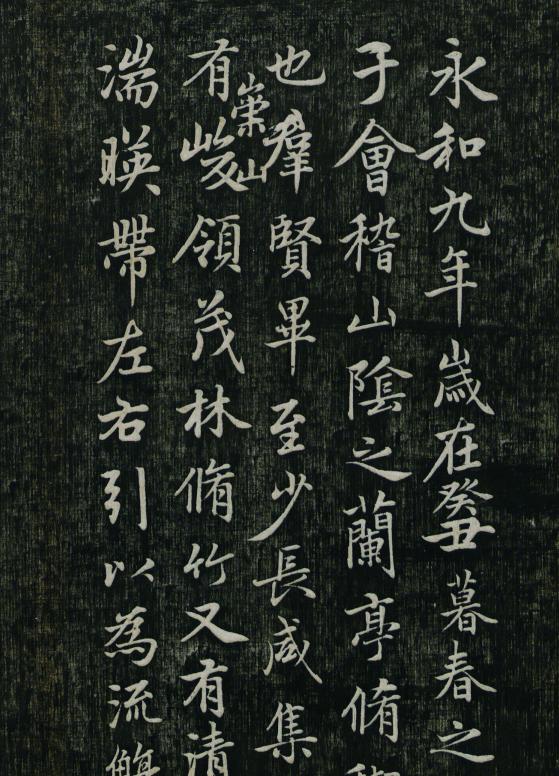 永和九年歲在癸丑暮春之
于會稽山陰之蘭亭脩
也羣賢畢至少長咸集
有崇山峻領茂林脩竹又有清
湍暎帶左右引以為流